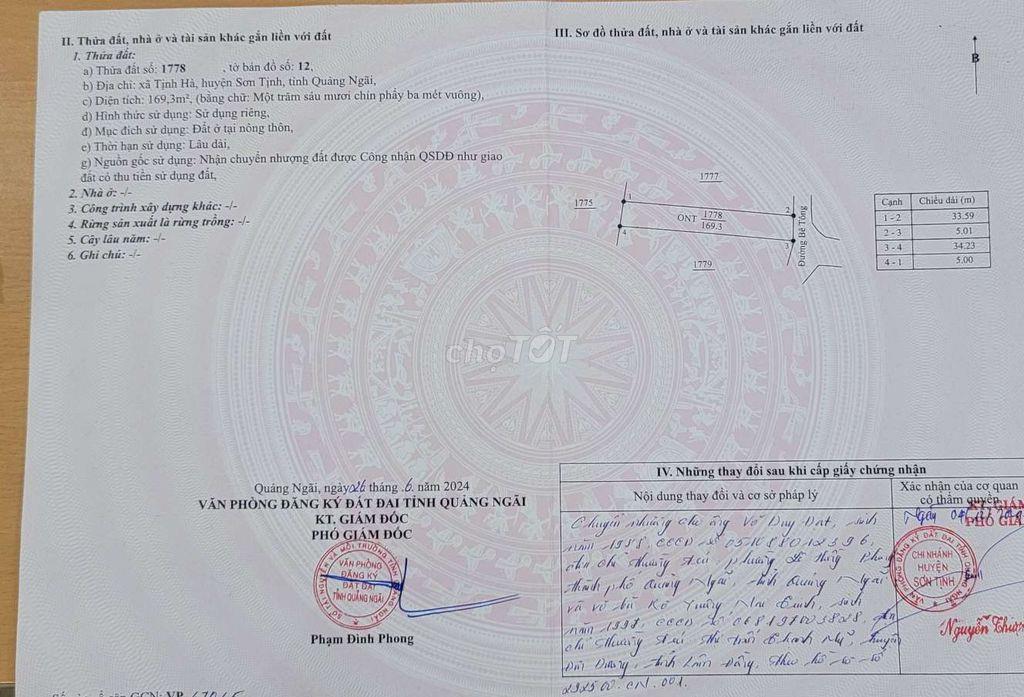 II. Thửa đất, nhà ở và tài sản khác gắn liền với đất
1. Thửa đất:
a) Thửa đất số: 1778 , tờ bản đồ số: 12,
b) Địa chỉ: xã Tịnh Hà, huyện Sơn Tịnh, tỉnh Quảng Ngãi,
c) Diện tích: 169,3m², (bằng chữ: Một trăm sáu mươi chín phẩy ba mét vuông),
d) Hình thức sử dụng: Sử dụng riêng,
đ) Mục đích sử dụng: Đất ở tại nông thôn,
e) Thời hạn sử dụng: Lâu dài,
g) Nguồn gốc sử dụng: Nhận chuyển nhượng đất được Công nhận QSDĐ như giao
đất có thu tiền sử dụng đất,
2. Nhà ở: -/-
3. Công trình xây dựng khác: -/-
4. Rừng sản xuất là rừng trồng: -/-
5. Cây lâu năm: -/-
6. Ghi chú: -/-
Quảng Ngãi, ngày 26 tháng 6 năm 2024
VĂN PHÒNG ĐĂNG KÝ ĐẤT ĐAI TỈNH QUẢNG NGÃI
KT. GIÁM ĐỐC
PHÓ GIÁM ĐỐC
SỞ TÀI NGUYÊN VÀ MÔI TRƯỜNG TỈNH QUẢNG NGÃI
VĂN PHÒNG
ĐĂNG KÝ
ĐẤT ĐAI
TỈNH QUẢNG NGÃI
Phạm Đình Phong
III. Sơ đồ thửa đất, nhà ở và tài sản khác gắn liền với đất
B
1777
1775
1
2
ONT 1778
169.3
4
3
1779
Đường Bê Tông
Cạnh Chiều dài (m)
1 - 2 33.59
2 - 3 5.01
3 - 4 34.23
4 - 1 5.00
chợTỐT
IV. Những thay đổi sau khi cấp giấy chứng nhận
Nội dung thay đổi và cơ sở pháp lý
Xác nhận của cơ quan
có thẩm quyền
Chuyển nhượng cho ông Võ Duy Đạt, sinh
năm 1988, CCCD số
phường Lê Hồng Phong
thành phố Quảng Ngãi, tỉnh Quảng Ngãi
và vợ bà
sinh
năm 1997, CCCD số
chỉ thường trú: Thị trấn Thạnh Mỹ, huyện
Đơn Dương, tỉnh Lâm Đồng, theo hồ sơ số
CN.001.
Ngày
KT. GIÁM
PHÓ GIÁ
VĂN PHÒNG ĐĂNG KÝ ĐẤT ĐAI TỈNH QUẢNG NGÃI
CHI NHÁNH
HUYỆN
SƠN TỊNH
Nguyễn